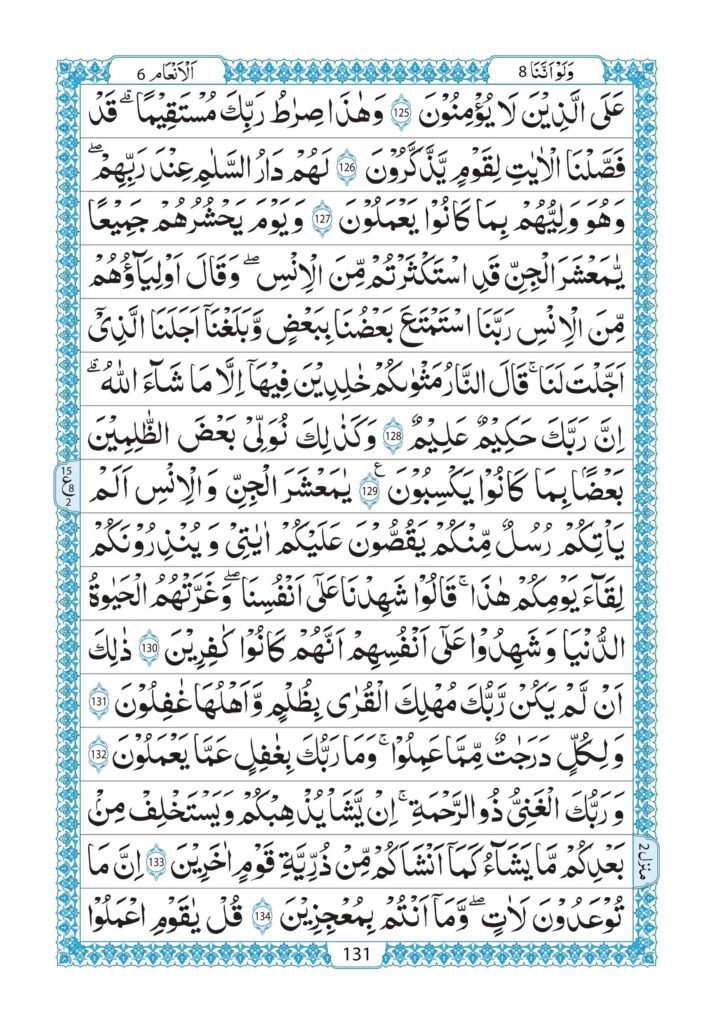 وَلَوْ اَنَّنَا 8
اَلْاَنْعَام 6
عَلَى الَّذِيْنَ لَا يُؤْمِنُوْنَ 125 وَهٰذَا صِرَاطُ رَبِّكَ مُسْتَقِيْمًا ؕ قَدْ
فَصَّلْنَا الْاٰيٰتِ لِقَوْمٍ يَّذَّكَّرُوْنَ 126 لَهُمْ دَارُ السَّلٰمِ عِنْدَ رَبِّهِمْ ۖ
وَهُوَ وَلِيُّهُمْ بِمَا كَانُوْا يَعْمَلُوْنَ 127 وَيَوْمَ يَحْشُرُهُمْ جَمِيْعًا
يٰمَعْشَرَ الْجِنِّ قَدِ اسْتَكْثَرْتُمْ مِّنَ الْاِنْسِ ۖ وَقَالَ اَوْلِيٰٓـؤُهُمْ
مِّنَ الْاِنْسِ رَبَّنَا اسْتَمْتَعَ بَعْضُنَا بِبَعْضٍ وَّبَلَغْنَاۤ اَجَلَنَا الَّذِيْۤ
اَجَّلْتَ لَنَا ۚ قَالَ النَّارُ مَثْوٰىكُمْ خٰلِدِيْنَ فِيْهَاۤ اِلَّا مَا شَآءَ اللّٰهُ ؕ
اِنَّ رَبَّكَ حَكِيْمٌ عَلِيْمٌ 128 وَكَذٰلِكَ نُوَلِّيْ بَعْضَ الظّٰلِمِيْنَ
بَعْضًا بِمَا كَانُوْا يَكْسِبُوْنَ 129 ع يٰمَعْشَرَ الْجِنِّ وَالْاِنْسِ اَلَمْ
15 ع 8 2
يَاْتِكُمْ رُسُلٌ مِّنْكُمْ يَقُصُّوْنَ عَلَيْكُمْ اٰيٰتِيْ وَيُنْذِرُوْنَكُمْ
لِقَآءَ يَوْمِكُمْ هٰذَا ۚ قَالُوْا شَهِدْنَا عَلٰۤى اَنْفُسِنَا ۖ وَغَرَّتْهُمُ الْحَيٰوةُ
الدُّنْيَا وَشَهِدُوْا عَلٰۤى اَنْفُسِهِمْ اَنَّهُمْ كَانُوْا كٰفِرِيْنَ 130 ذٰلِكَ
اَنْ لَّمْ يَكُنْ رَّبُّكَ مُهْلِكَ الْقُرٰى بِظُلْمٍ وَّاَهْلُهَا غٰفِلُوْنَ 131
وَلِكُلٍّ دَرَجٰتٌ مِّمَّا عَمِلُوْا ۚ وَمَا رَبُّكَ بِغَافِلٍ عَمَّا يَعْمَلُوْنَ 132
وَرَبُّكَ الْغَنِيُّ ذُو الرَّحْمَةِ ۚ اِنْ يَّشَاْ يُذْهِبْكُمْ وَيَسْتَخْلِفْ مِنْۢ
بَعْدِكُمْ مَّا يَشَآءُ كَمَاۤ اَنْشَاَكُمْ مِّنْ ذُرِّيَّةِ قَوْمٍ اٰخَرِيْنَ 133 اِنَّ مَا
منزل 2
تُوْعَدُوْنَ لَاٰتٍ ۖ وَّمَاۤ اَنْتُمْ بِمُعْجِزِيْنَ 134 قُلْ يٰقَوْمِ اعْمَلُوْا
131